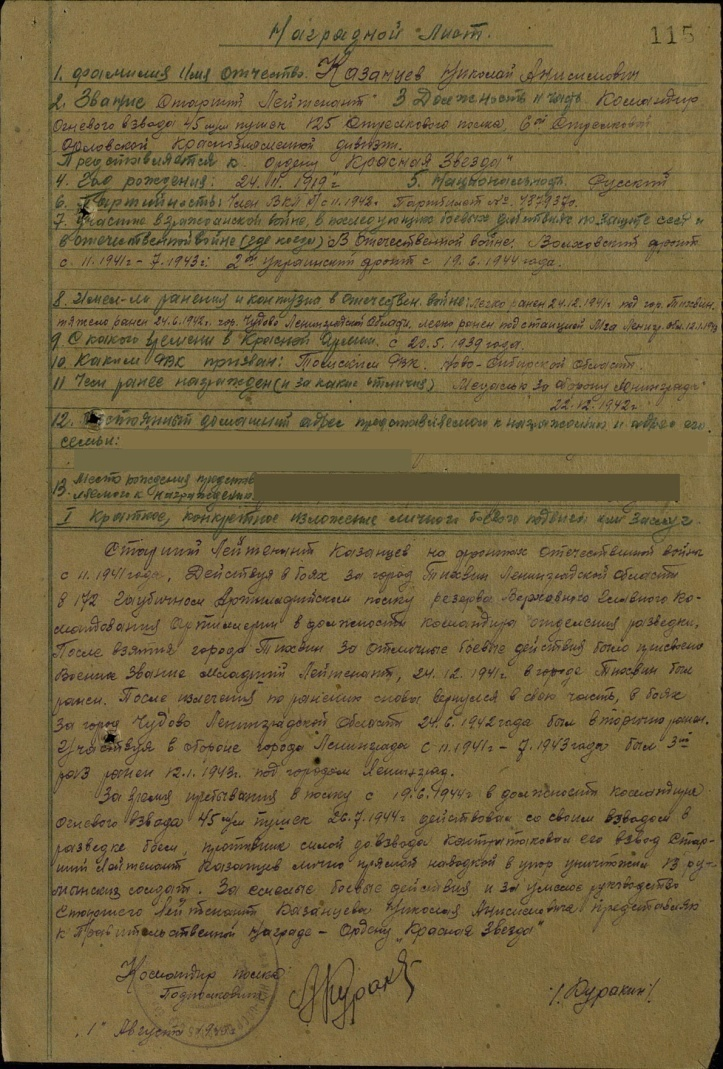 Наградной Лист.
115
1. Фамилия Имя Отчество. Казанцев Николай Анисимович
2. Звание Старший Лейтенант 3 Должность и часть Командир
Огневого взвода 45 м/м пушек 125 Стрелкового полка 6ой Стрелковой
Орловской Краснознаменной дивизии.
Представляется к ордену "Красная Звезда"
4. Год рождения: 1919г 5. Национальность Русский
6. Партийность: член ВКП с 11.1942г. Партбилет №
7. Участие в гражданской войне, в последующих боевых действиях по защите СССР и
в отечественной войне (где когда) В Отечественной войне. Волховский фронт
с 11.1941г - 7.1943г: 2ой Украинский фронт с 19.6.1944 года.
8. Имеет ли ранения и контузии в отечествен. войне: Легко ранен 24.12.1941г под гор. Тихвин,
тяжело ранен 24.6.1942г. гор. Чудово Ленинградской Области, легко ранен под станцией Мга Лениг. обл. 12.1.1943
9. С какого времени в Красной Армии. с 20.5.1939 года.
10. Каким РВК призван: РВК. Ново-Сибирской Области.
11 Чем ранее награжден (и за какие отличия) Медалью За оборону Ленинграда"
22.12.1942г.
12. Постоянный домашний адрес представляемого к награждению и адрес его
семьи:
13. Место рождения представ
ляемого к награждению
I Краткое, конкретное изложение личного боевого подвига или заслуг.
Старший Лейтенант Казанцев на фронтах Отечественной войны
с 11.1941 года, Действуя в боях за город Тихвин Ленинградской области
в 172 Гаубичном Артиллерийском полку резерва Верховного Главного Ко-
мандования Артиллерии в должности командира отделения разведки.
После взятия города Тихвин за отличные боевые действия было присвоено
Военное звание младший Лейтенант, 24.12.1941г. в городе Тихвин был
ранен. После излечения по ранению снова вернулся в свою часть, в боях
за город Чудово Ленинградской Области 24.6.1942 года был вторично ранен.
Участвуя в обороне города Ленинграда с 11.1941г - 7.1943 года был 3ий
раз ранен 12.1.1943г. под городом Ленинград.
За время пребывания в полку с 19.6.1944г в должности командира
Огневого взвода 45 м/м пушек 26.7.1944г действовал со своим взводом в
разведке боем, противник силой до взвода контратаковал его взвод Стар-
ший Лейтенант Казанцев лично прямой наводкой в упор уничтожил 13 ру-
мынских солдат. За смелые боевые действия и за умелое руководство
Старшего Лейтенант Казанцева Николая Анисимовича представляю
к Правительственной Награде - Ордену "Красная Звезда"
Командир полка
Подполковник
/Куракин/.
"1" Августа 1944г.